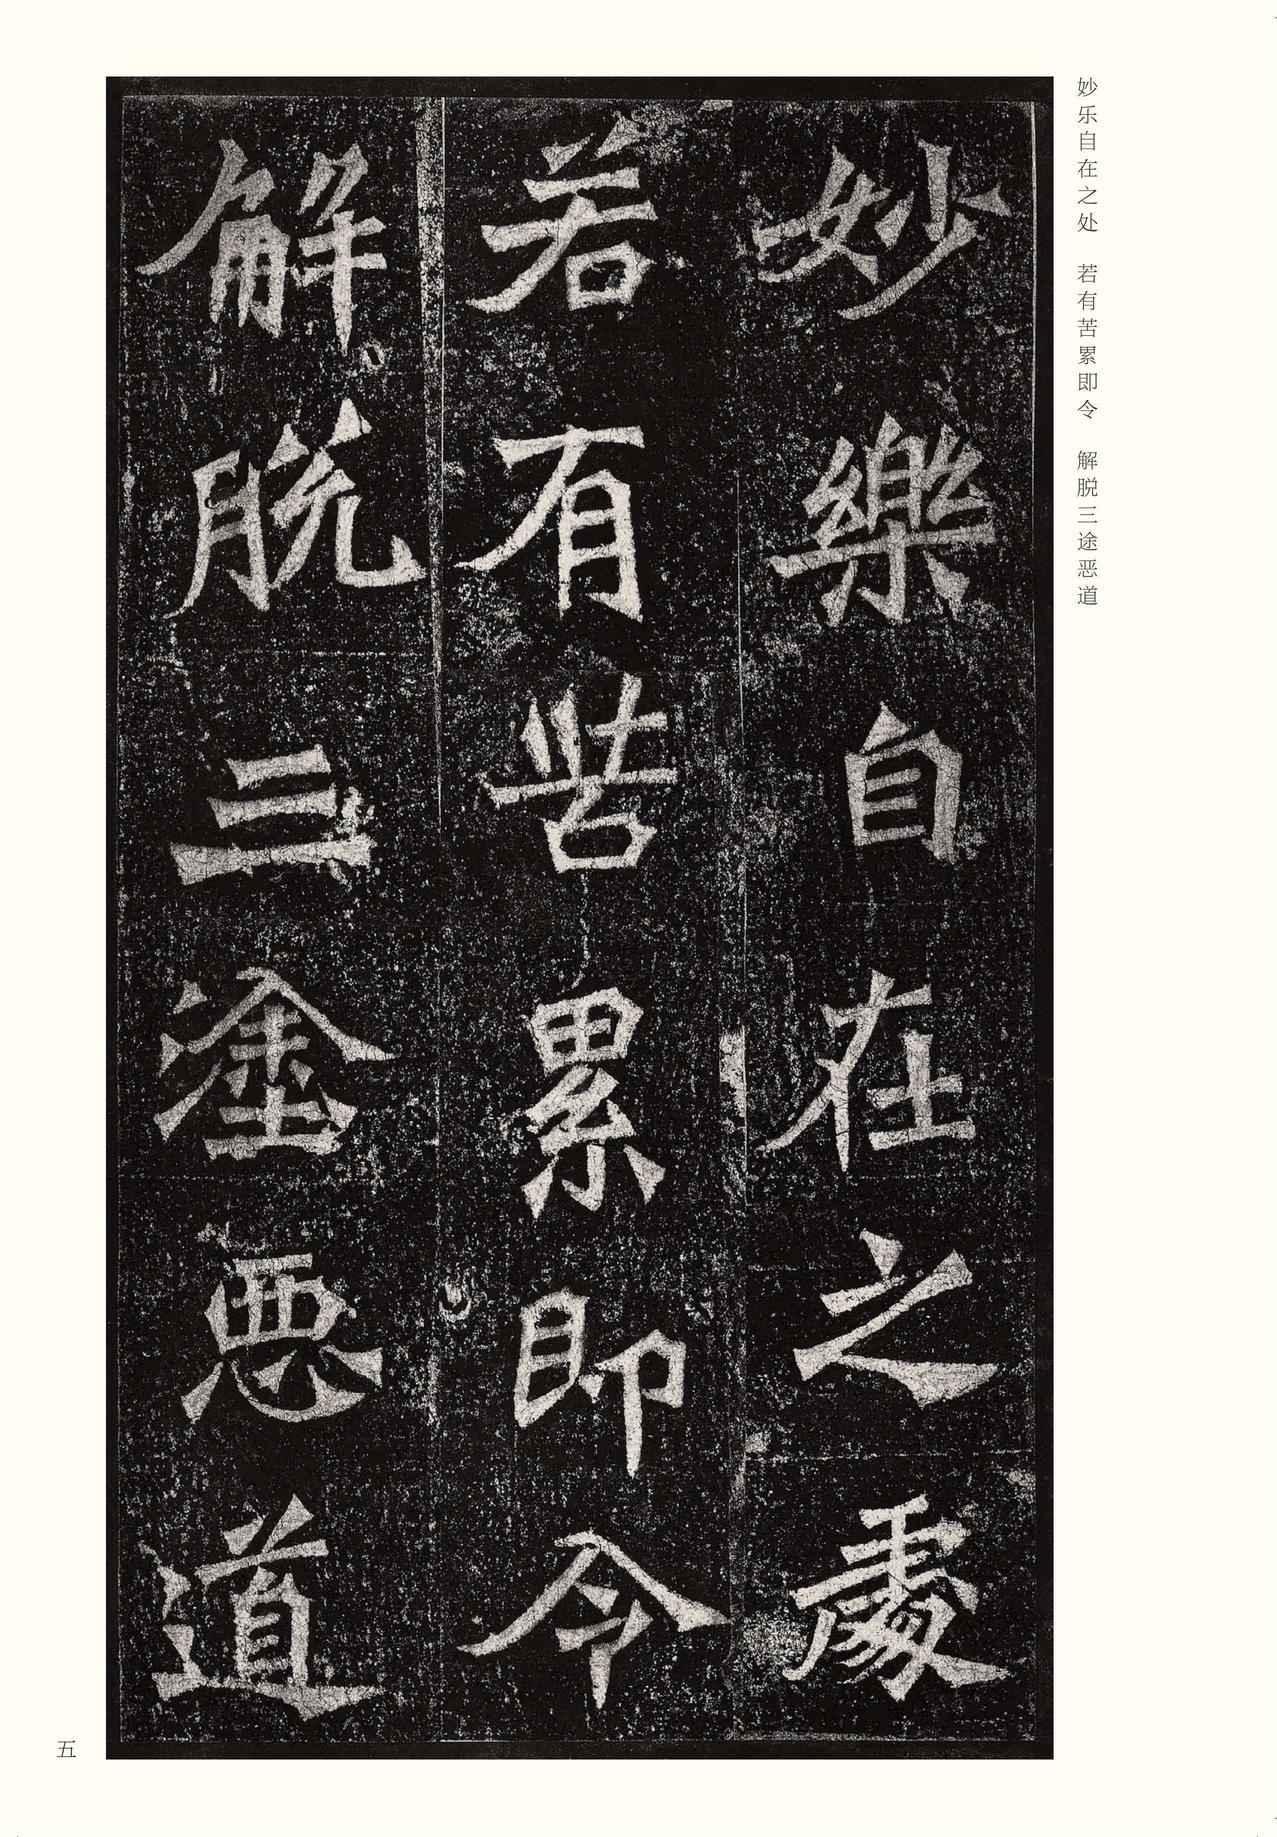 妙乐自在之处　若有苦累即令　解脱三途恶道
妙樂自在之處
若有苦累即令
解脱三塗惡道
五